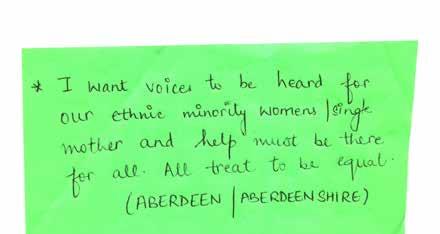 * I want voices to be heard for
our ethnic minority womens/single
mother and help must be there
for all. All treat to be equal.
(ABERDEEN | ABERDEENSHIRE)